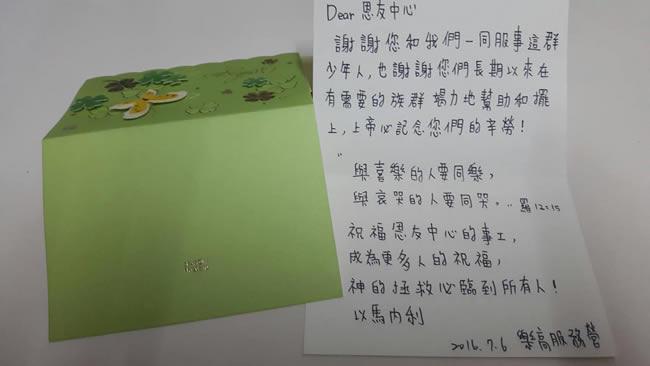 Dear 恩友中心
謝謝您和我們一同服事這群
少年人,也謝謝您們長期以來在
有需要的族群竭力地幫助和擺
上,上帝必記念您們的辛勞!
"
與喜樂的人要同樂,
與哀哭的人要同哭。.. 羅12:15
祝福恩友中心的事工,
成為更多人的祝福,
神的拯救必臨到所有人!
以馬內利
2016.7.6 樂高服務營